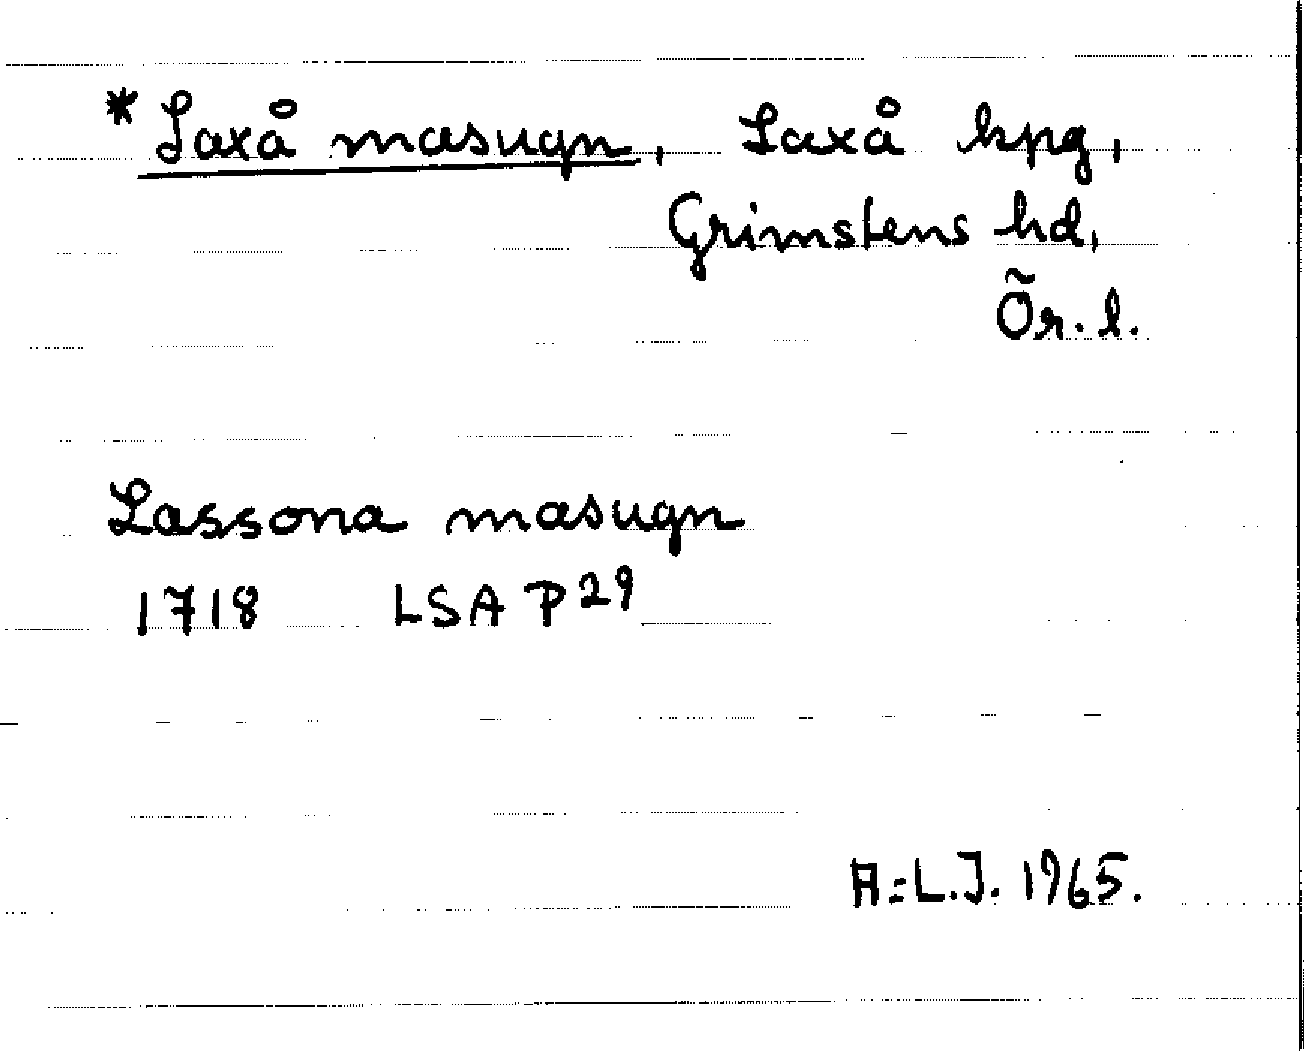 *Laxå masugn, Laxå kpg,
Grimstens hd,
Ör. l.
Lassona masugn
1718 LSA P29
A:L.J. 1965.